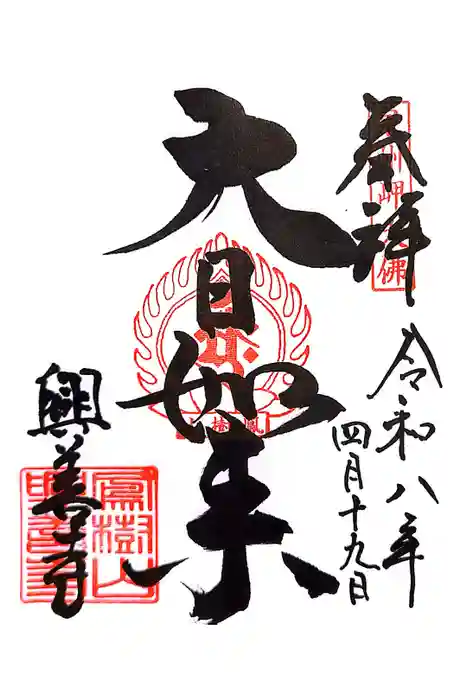 奉拝
令和八年
四月十九日
大日如来
興善寺
鳳樹山